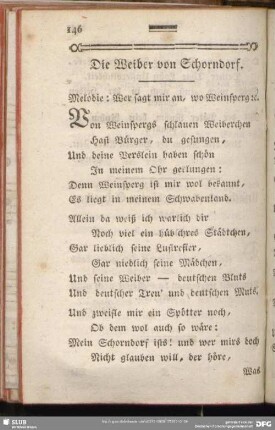 146
Die Weiber von Schorndorf.
Melodie: Wer sagt mir an, wo Weinsperg ꝛc.
Von Weinspergs schlauen Weiberchen
Hast Bürger, du gesungen,
Und deine Verslein haben schön
In meinem Ohr geclungen:
Denn Weinsperg ist mir wol bekannt,
Es liegt in meinem Schwabenland.
Allein da weiß ich warlich dir
Noch viel ein hübsches Städtchen,
Gar lieblich seine Lustrefier,
Gar niedlich seine Mädchen,
Und seine Weiber — deutschen Bluts
Und deutscher Treu' und deutschen Muts.
Und zweifle mir ein Spötter noch,
Ob dem wol auch so wäre:
Mein Schorndorf ists: und wer mirs doch
Nicht glauben will, der höre,
Was
SLUB
DFG